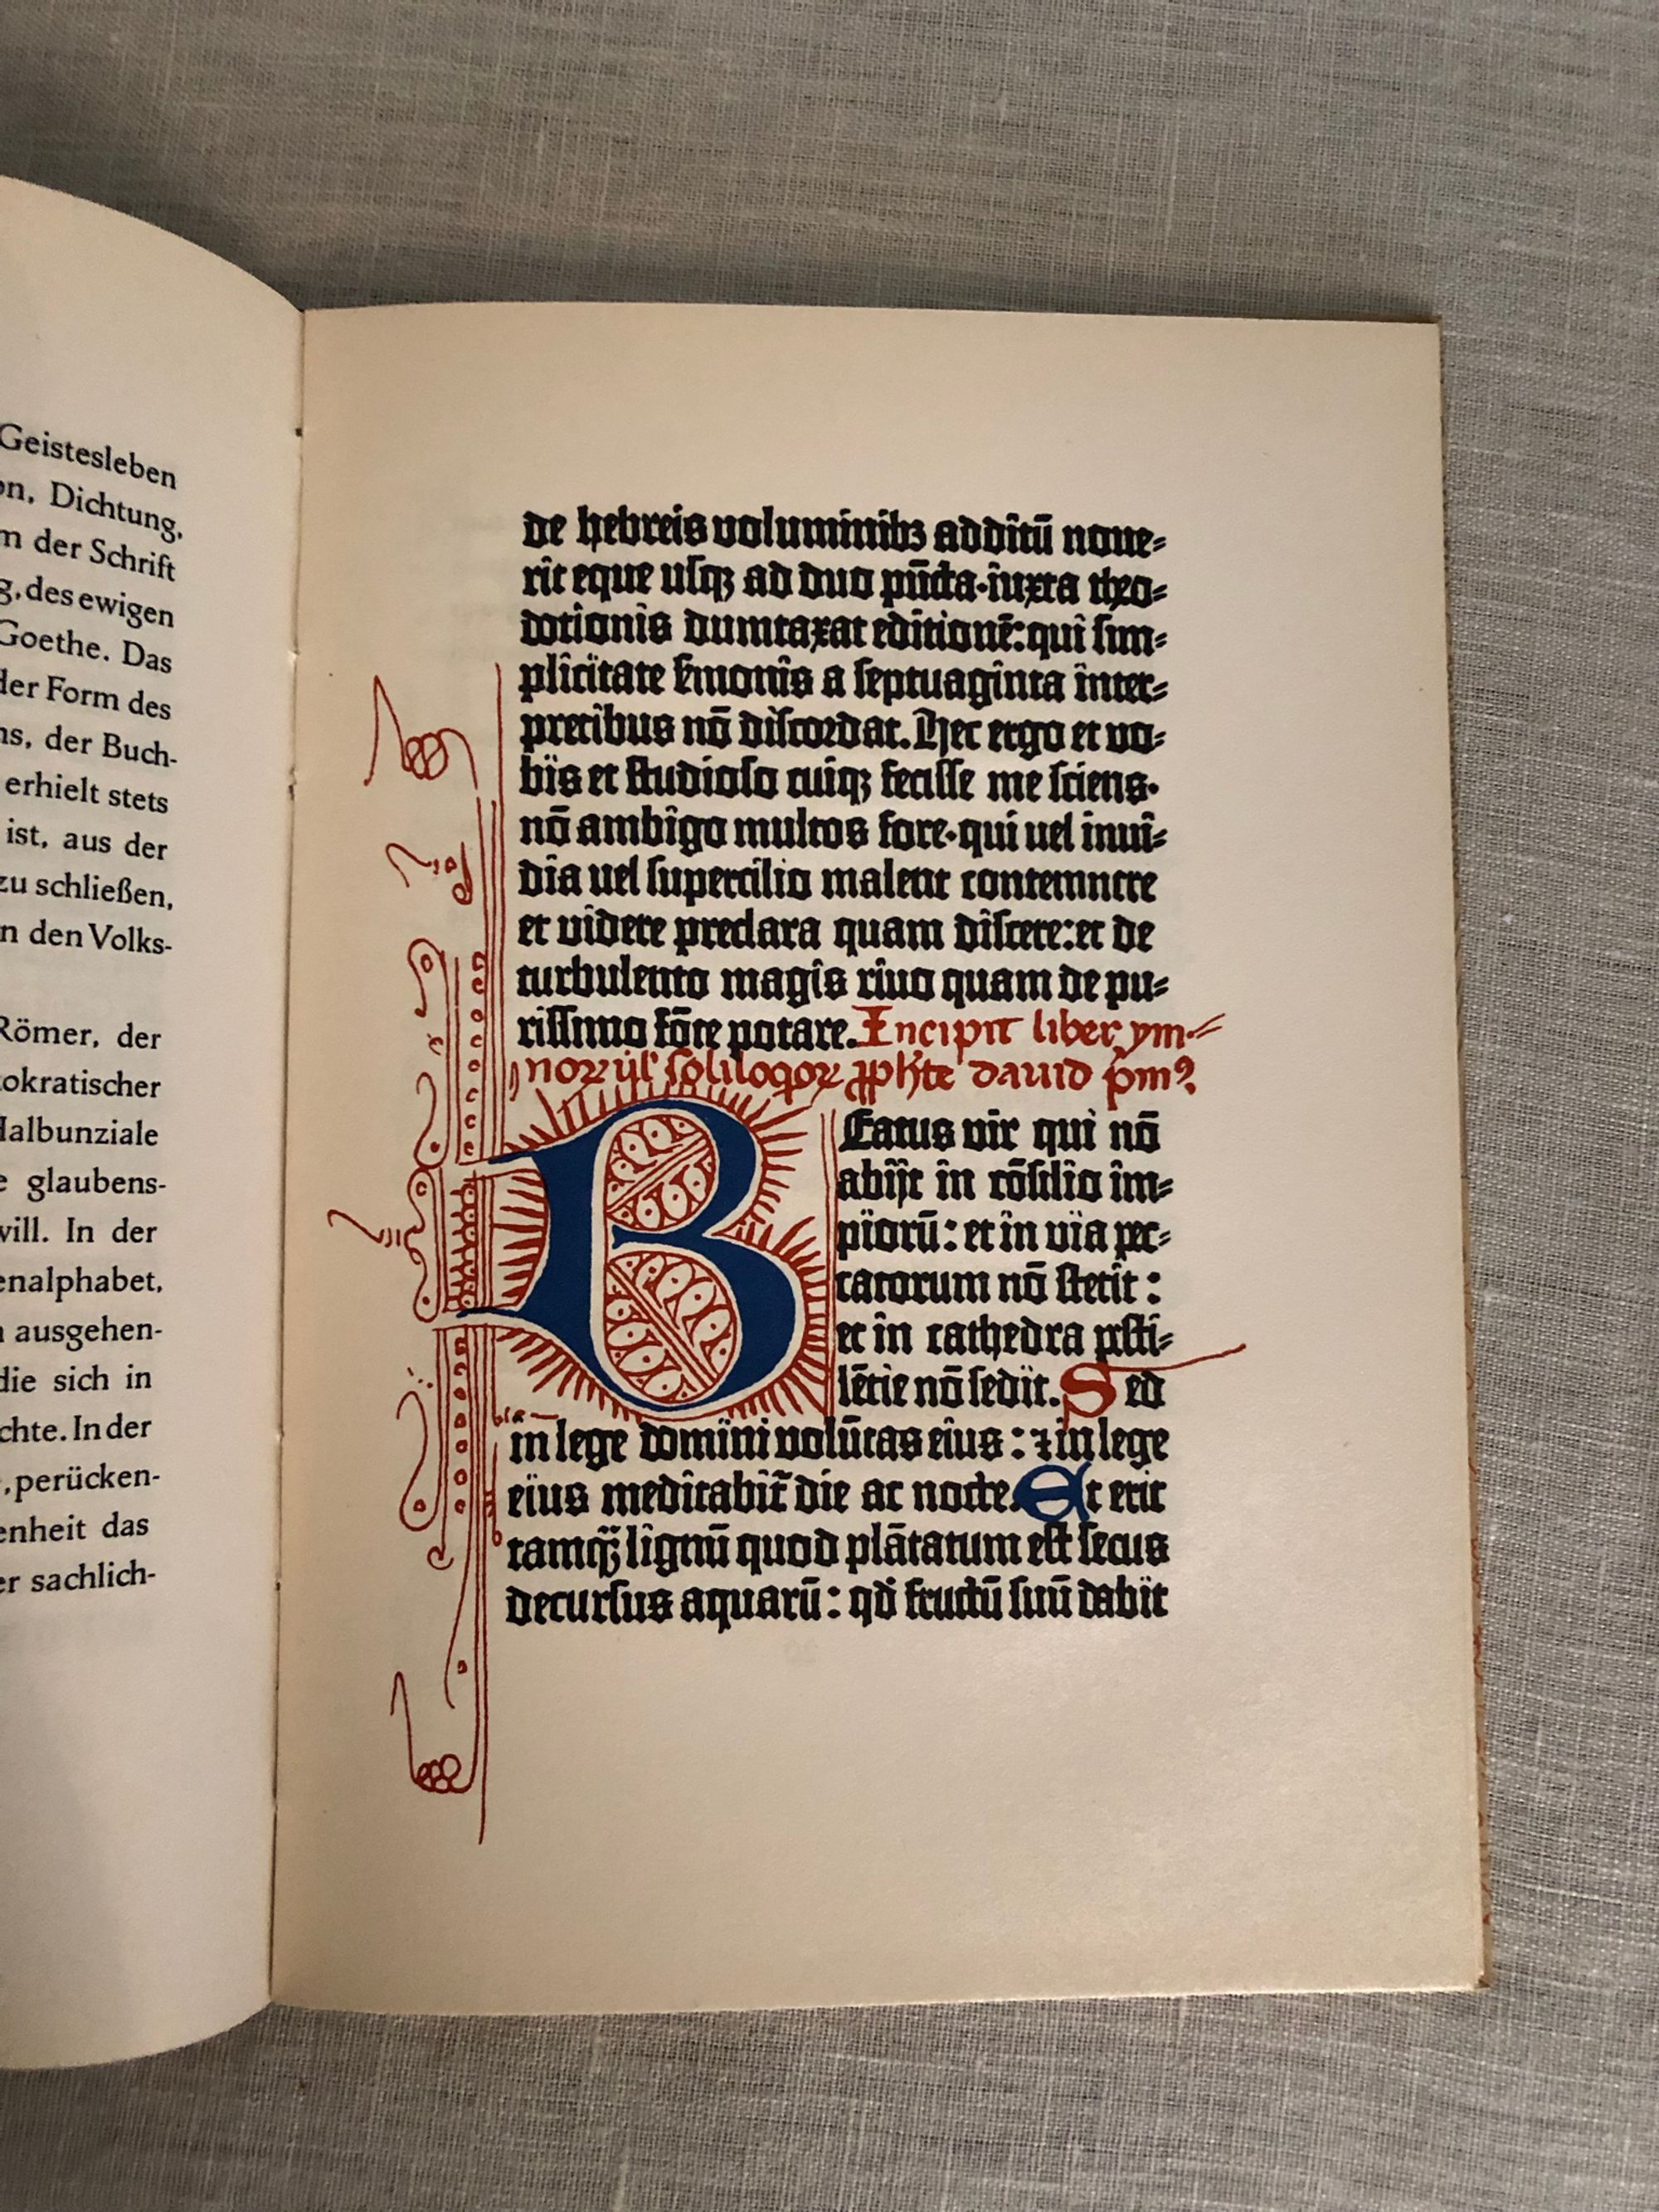 Geistesleben
on, Dichtung,
m der Schrift
g, des ewigen
Goethe. Das
der Form des
ns, der Buch-
erhielt stets
ist, aus der
zu schließen,
n den Volks-
Römer, der
tokratischer
Halbunziale
e glaubens-
will. In der
enalphabet,
n ausgehen-
die sich in
chte. In der
, perücken-
enheit das
er sachlich-
de hebreis voluminibꝫ additū noue⸗
rit eque uſqꝫ ad duo pūcta·iuxta theo⸗
dotionis dumtaxat editionē: qui ſim⸗
plicitate ẜmonis a ſeptuaginta inter⸗
pretibus nō diſcordat. Hec ergo et vo⸗
bis et ſtudioſo cuiqꝫ feciſſe me ſciens·
nō ambigo multos fore·qui uel inui⸗
dia uel ſupercilio malent contemnere
et videre preclara quam diſcere: et de
turbulento magis riuo quam de pu⸗
riſſimo fōte potare. Incipit liber ym⸗
noꝝ ſoliloqoꝝ dauid
Beatus vir qui nō
abijt in cōſilio im⸗
piorū: et in via pec⸗
catorum nō ſtetit:
et in cathedra peſti⸗
lētie nō ſedit. Sed
in lege domini volūtas eius: ⁊ in lege
eius meditabit̄ die ac nocte. Et erit
tamqꝫ̈ lignū quod plātatum eſt ſecus
decurſus aquarū: qd̓ fructū ſuū dabit